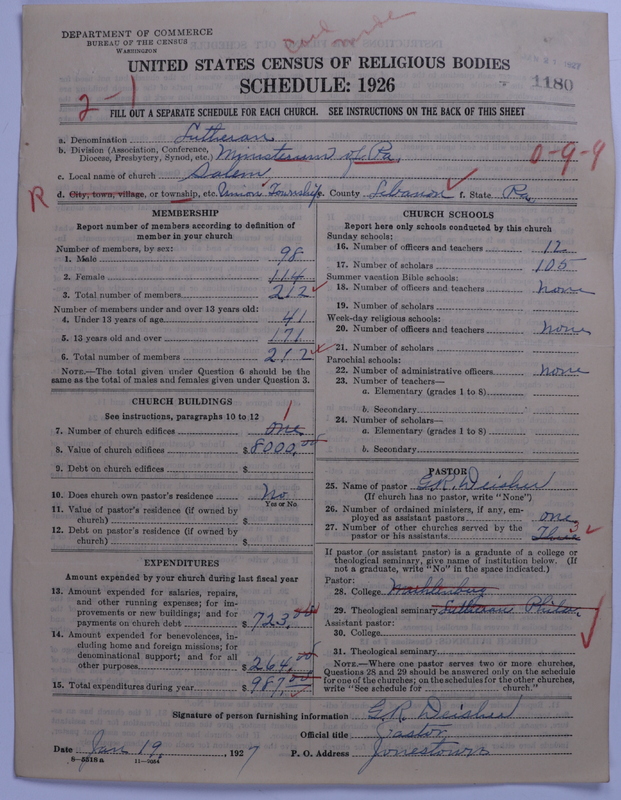 DEPARTMENT OF COMMERCE
BUREAU OF THE CENSUS
WASHINGTON
UNITED STATES CENSUS OF RELIGIOUS BODIES
SCHEDULE: 1926
1180
2-1
FILL OUT A SEPARATE SCHEDULE FOR EACH CHURCH. SEE INSTRUCTIONS ON THE BACK OF THIS SHEET
a. Denomination Lutheran
b. Division (Association, Conference, Diocese, Presbytery, Synod, etc.) Ministerium of Pa.
0-9-9
c. Local name of church Salem
R
d. City, town, village, or township, etc. Union Township e. County Lebanon f. State Pa.
MEMBERSHIP
Report number of members according to definition of
member in your church
Number of members, by sex:
1. Male 98
2. Female 114
3. Total number of members 212
Number of members under and over 13 years old:
4. Under 13 years of age 41
5. 13 years old and over 171
6. Total number of members 212
NOTE.—The total given under Question 6 should be the
same as the total of males and females given under Question 3.
CHURCH BUILDINGS
See instructions, paragraphs 10 to 12
1
7. Number of church edifices one
8. Value of church edifices $8000.00
9. Debt on church edifices $
10. Does church own pastor's residence No
Yes or No
11. Value of pastor's residence (if owned by
church) $
12. Debt on pastor's residence (if owned by
church) $
EXPENDITURES
Amount expended by your church during last fiscal year
13. Amount expended for salaries, repairs,
and other running expenses; for im-
provements or new buildings; and for
payments on church debt $723.
14. Amount expended for benevolences, in-
cluding home and foreign missions; for
denominational support; and for all
other purposes $264.00
15. Total expenditures during year $987.00
CHURCH SCHOOLS
Report here only schools conducted by this church
Sunday schools:
16. Number of officers and teachers 12
17. Number of scholars 105
Summer vacation Bible schools:
18. Number of officers and teachers None
19. Number of scholars
Week-day religious schools:
20. Number of officers and teachers None
21. Number of scholars
Parochial schools:
22. Number of administrative officers None
23. Number of teachers—
a. Elementary (grades 1 to 8)
b. Secondary
24. Number of scholars—
a. Elementary (grades 1 to 8)
b. Secondary
PASTOR
25. Name of pastor G.R. Deisher
(If church has no pastor, write "None")
26. Number of ordained ministers, if any, em-
ployed as assistant pastors one
27. Number of other churches served by the
pastor or his assistants Three 3
If pastor (or assistant pastor) is a graduate of a college or
theological seminary, give name of institution below. (If
not a graduate, write "No" in the space indicated.)
Pastor:
28. College Muhlenburg
29. Theological seminary Lutheran Phila
Assistant pastor:
30. College
31. Theological seminary
NOTE.—Where one pastor serves two or more churches,
Questions 28 and 29 should be answered only on the schedule
for one of the churches; on the schedules for the other churches,
write "See schedule for church."
Signature of person furnishing information G.R. Deisher
Official title Pastor
Date Jan 19, 1927 P. O. Address Jonestown
8-5518a 11-9054